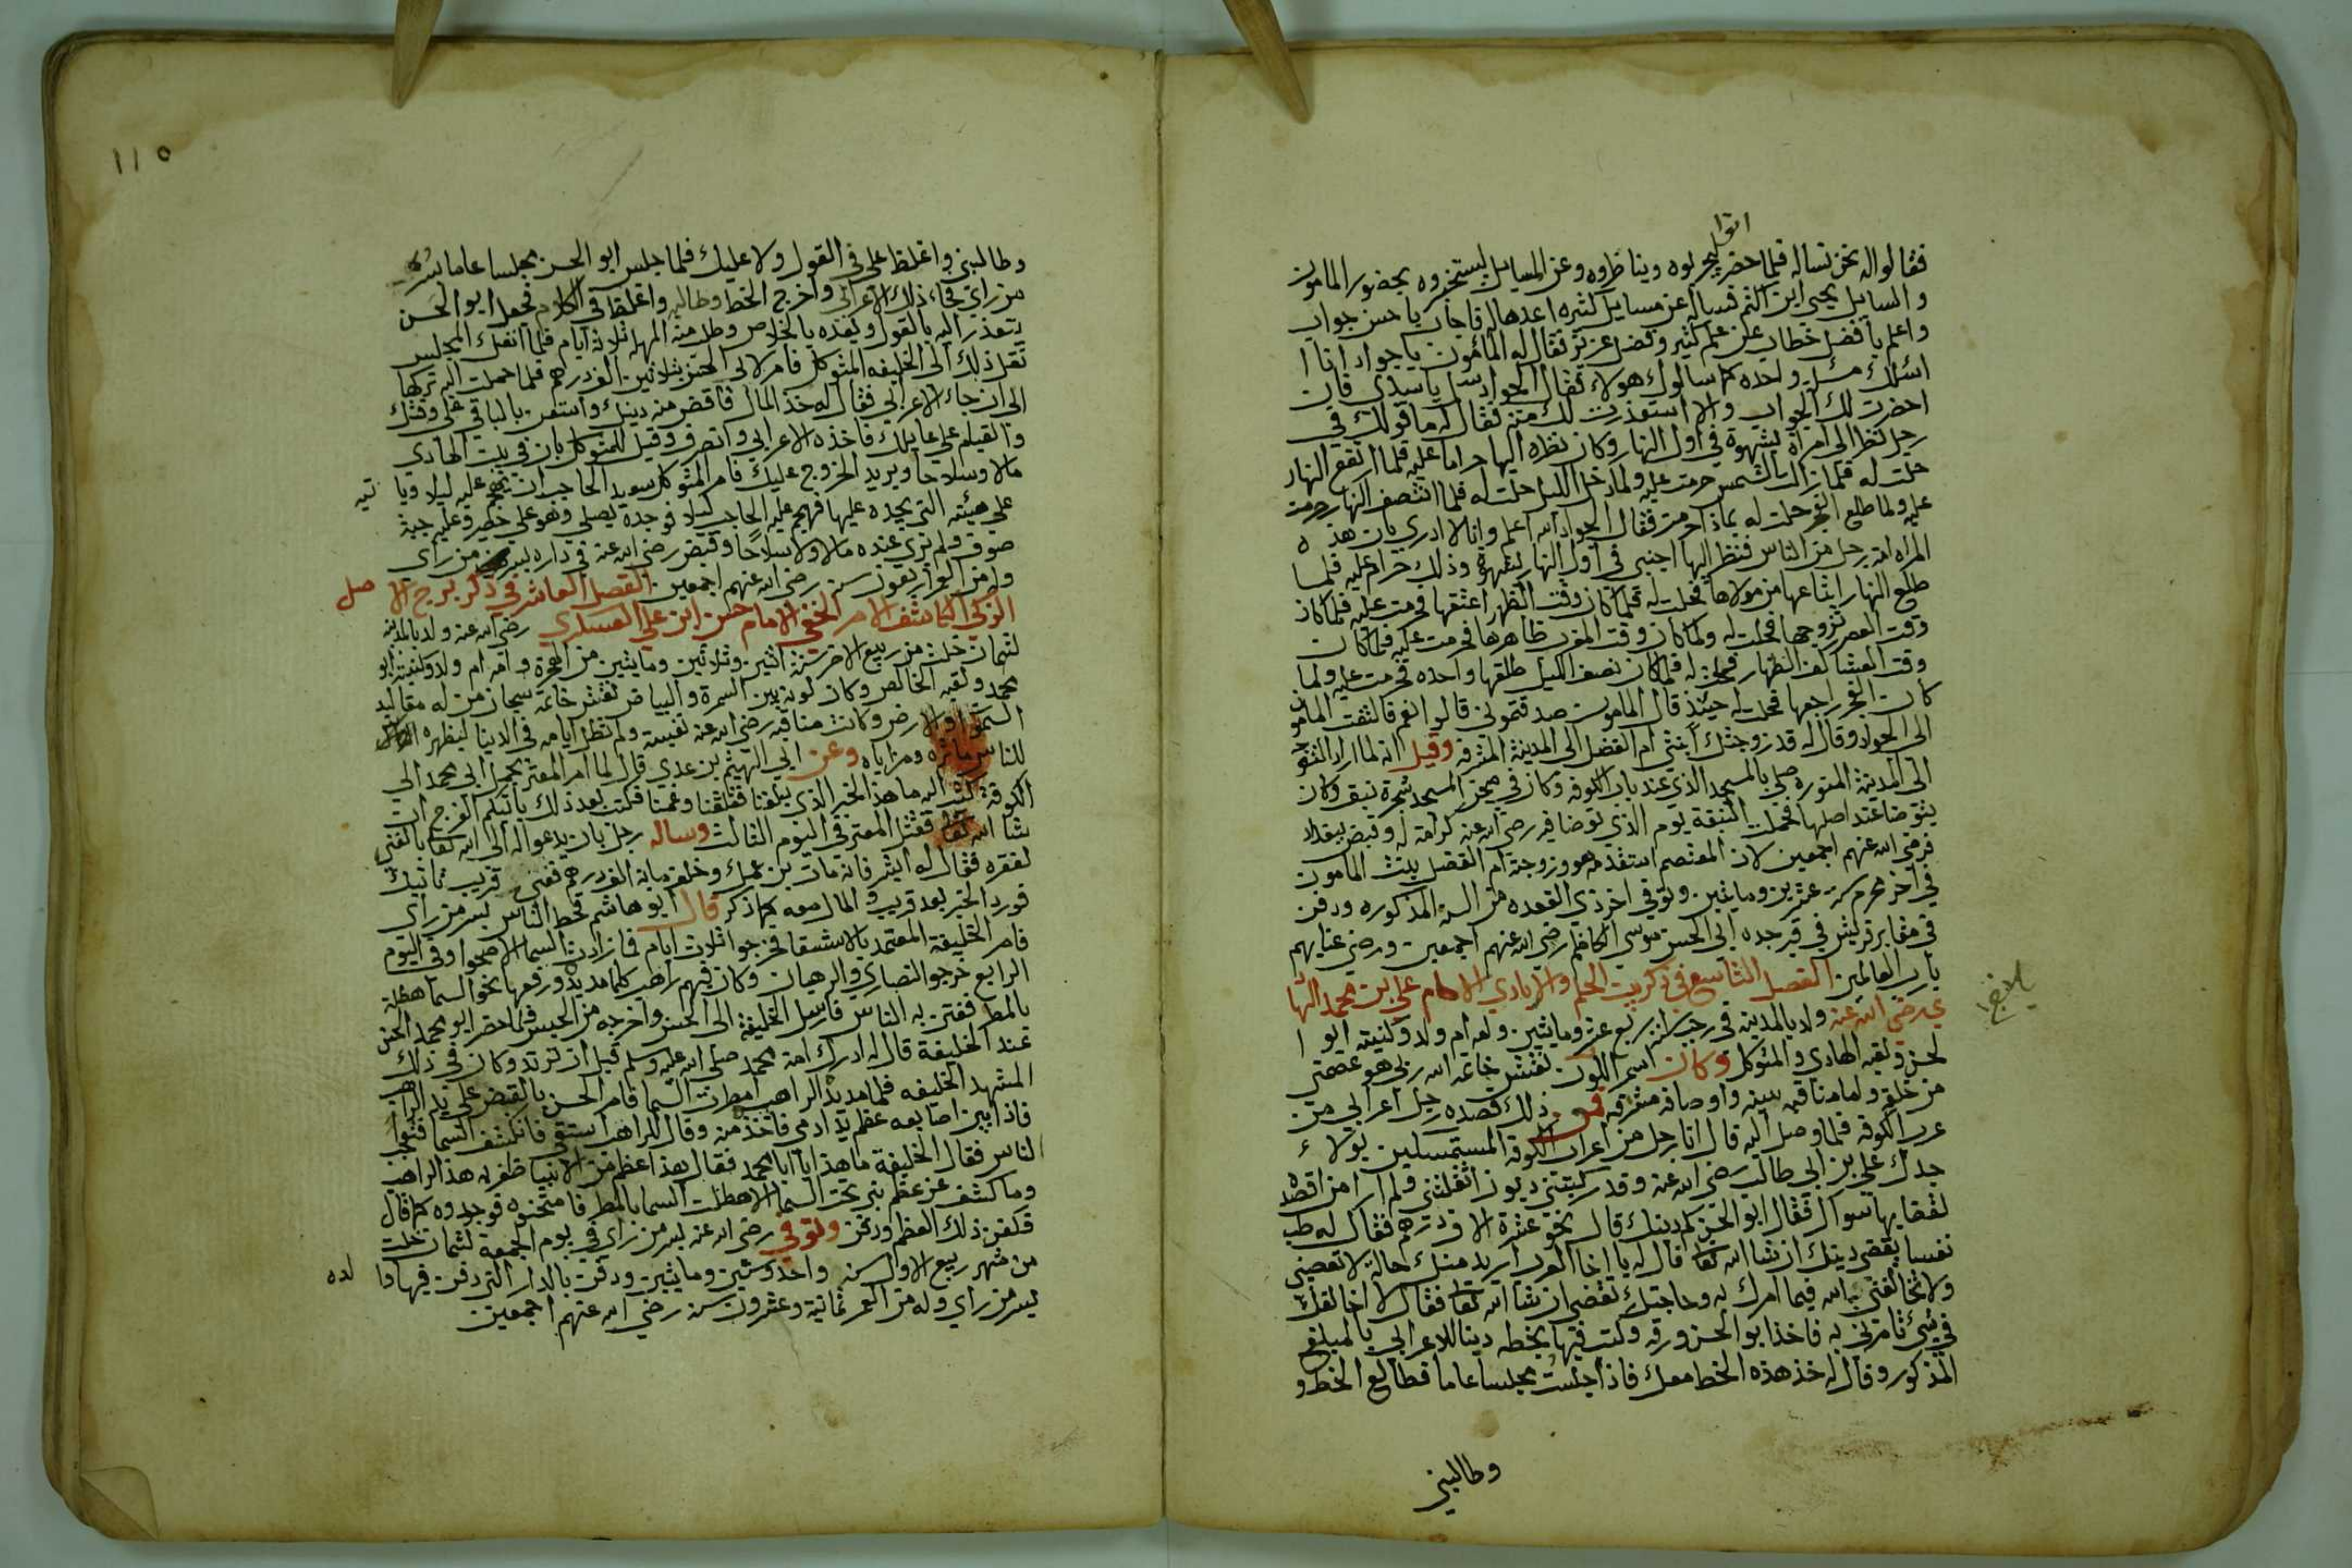 اتوا
فقالوا له نحن نساله فلما حضر ليجربوه ويناظروه وعن المسايل ليستخبروه بحضور المامون
والسايل يحيى ابن اكثم فساله عن مسايل كثيره اعدها له فاجاب باحسن جواب
واعلم بافضل خطاب عن علم كثير وفضل عزيز فقال له المأمون يا جواد انا ا
اسئلك مسئلة واحده كما سالوك هولاء فقال الجواد سل يا سيدي فان
احضرت لك الجواب والا استعذرت لك منه فقال له ما قولك في
رجل نظر الى امرأة بشهوة في اول النهار وكان نظره اليها حراما عليه فلما ارتفع النهار
حلت له فلما زالت الشمس حرمت عليه ولما دخل الليل حلت له فلما انتصف النهار حرمت
عليه ولما طلع الفجر حلت له بماذا حرمت فقال الجواد الله اعلم وانا لا ادري بان هذه
المراه امة رجل من الناس فنظر اليها اجنبي في اول النهار بشهوة وذلك حرام عليه فلما
طلع النهار ابتاعها من مولاها فحلت له فلما كان وقت الظهر اعتقها فحرمت عليه فلما كان
وقت العصر تزوجها فحلت له ولما كان وقت المغرب ظاهرها فحرمت عليه فلما كان
وقت العشا كفر الظهار فحلت له فلما كان نصف الليل طلقها واحده فحرمت عليه ولما
كان الفجر راجعها فحلت له حينئذ قال المامون صدقتموني قالوا نعم فالتفت المامون
الى الجواد وقال له قد زوجتك ابنتي ام الفضل الى المدينة المشرفه وقيل انه لما اراد التوجه
الى المدينة المنورة صلى بالمسجد الذي عند باب الكوفه وكان في صحن المسجد شجرة نبق وكان
يتوضا عند اصلها فحملت النبقة يوم الذي توضا فيه رضي الله عنه كرامة له وقبض ببغداد
فرضي الله عنهم اجمعين لان المعتصم استقدمه هو وزوجته ام الفضل بنت المامون
في اخر محرم سنة عشرين ومايتين وتوفي اخر ذي القعده من السنة المذكوره ودفن
في مقابر قريش في قبر جده ابي الحسن موسى الكاظم رضي الله عنهم اجمعين ورضي عنا بهم
يا رب العالمين الفصل التاسع في ذكر بيت الحلم والايادي الامام علي بن محمد الها
دي رضي الله عنه ولد بالمدينه في رجب سنة اربع عشر ومايتين وامه ام ولد وكنيته ابو ا
لحسن ولقبه الهادي والمتوكل وكان اسمر اللون نقش خاتمه الله ربي هو عصمتي
من خلقه واما مناقبه بينه واوصافه مشرقه فمن ذلك قصده رجل اعرابي من
عرب الكوفه فلما وصل اليه قال انا رجل من اعراب الكوفة المستمسكين بولاء
جدك علي بن ابي طالب رضي الله عنه وقد ركبتني ديون اثقلتني ولم ار من اقصده
لقضايها سواك فقال ابو الحسن كم دينك قال نحو عشرة الاف درهم فقال له طب
نفسا بقضي دينك ان شا الله تعالى قال له يا اخا العرب اريد منك حالة لا تعصيني
ولا تخالفني بالله فيما امرك به وحاجتك تقضى ان شا الله تعالى فقال لا اخالفك
في شئ تامرني به فاخذ ابو الحسن ورقه وكتب فيها بخطه دينا للاعرابي بالمبلغ
المذكور وقال له خذ هذه الخط معك فاذا جلست مجلسا عاما فطالع الخط و
وطالبني
١١٥
وطالبني واغلظ علي في القول ولا عليك فلما جلس ابو الحسن مجلسا عاما بسر
من راي فجاء ذلك الاعرابي واخرج الخط وطالبه واغلظ في الكلام فجعل ابو الحسن
يتعذر اليه بالقول ويعده بالخلاص وطلب منه المهلة ثلاثة ايام فلما انفك المجلس
نقل ذلك الى الخليفه المتوكل فامر لابي الحسن بثلاثين الف درهم فلما حملت اليه تركها
الى ان جاء الاعرابي فقال له خذ المال فاقض منه دينك واستعن بالباقي على وقتك
والقيام على عايلتك فاخذه الاعرابي وانصرف وقيل للمتوكل بان في بيت الهادي
مالا وسلاحا ويريد الخروج عليك فامر المتوكل سويد الحاجب ان يهجم عليه ليلا ويا تيه
على هيئته التي يجده عليها فهجم عليه الحاجب ليلا فوجده يصلي وهو على حصير وعليه جبة
صوف ولم يرى عنده مالا ولا سلاحا وقبض رضي الله عنه في داره بسر من راى
وله من العمر اربعون سنه رضي الله عنهم اجمعين الفصل العاشر في ذكر برج الا صل
الزكي الكاشف الامر الخفي الامام حسن ابن علي العسكري رضي الله عنه ولد بالمدينه
لثمان خلت من ربيع الاخر سنة اثنين وثلاثين ومايتين من الهجرة وامه ام ولد وكنيته ابو
محمد ولقبه الخالص وكان لونه بين السمرة والبياض نقش خاتمه سبحان من له مقاليد
السموات والارض وكانت مناقبه رضي الله عنه نفيسة ولم تطل ايامه في الدينا ليظهره الله
للناس ماثره ومزاياه وعن ابي الهيثم بن عدي قال لما امر المعتز بحمل ابي محمد الى
الكوفة كتب اليه ما هذا الخبر الذي يبلغنا فقلقنا وغمنا فكتب بعد ذلك ياتيكم الفرج ان
شا الله تعالى فقتل المعتز في اليوم الثالث وساله رجل بان يدعو اله الى الله تعالى بالغنى
لفقره فقال له ابشر فانه مات بن عمك وخلف ماية الف درهم فعن قريب تاتيك
فورد الخبر بعد قريب والمال معه كما ذكر قال ابو هاشم قحط الناس بسر من راى
فامر الخليفة المعتمد بالاستسقا فخرجوا ثلاث ايام فما زادت السما الا صحوا وفي اليوم
الرابع خرجو النصارى والرهبان وكان فيهم راهب كلما مد يده ورفعها نحو السما هطلت
بالمطر ففتن به الناس فارسل الخليفة الى الحسن واخرجه من الحبس فلما حضر ابو محمد الحسن
عند الخليفة قال له ادرك امة محمد صلى الله عليه وسلم قبل ان ترتد وكان في ذلك
المشهد الخليفه فلما مد يده الراهب امطرت السما فامر الحسن بالقبض على يد الراهب
فاذا بين اصابعه عظم يد ادمي فاخذ منه وقال للراهب استسقي فانكشف السما فتعجب
الناس فقال الخليفة ما هذا يا ابا محمد فقال هذا عظم من الانبيا ظفر به هذا الراهب
وما كشف عن عظم نبي تحت السما الا هطلت السما بالمطر فامتحنوه فوجدوه كما قال
فكفن ذلك العظم ودفن وتوفي رضي الله عنه بسر من راي في يوم الجمعة لثمان خلت
من شهر ربيع الاول سنه واحد وستين ومايتين ودفن بالدار التي دفن فيها وا لده
بسر من راي وله من العمر ثمانية وعشرون سنه رضي الله عنهم اجمعين